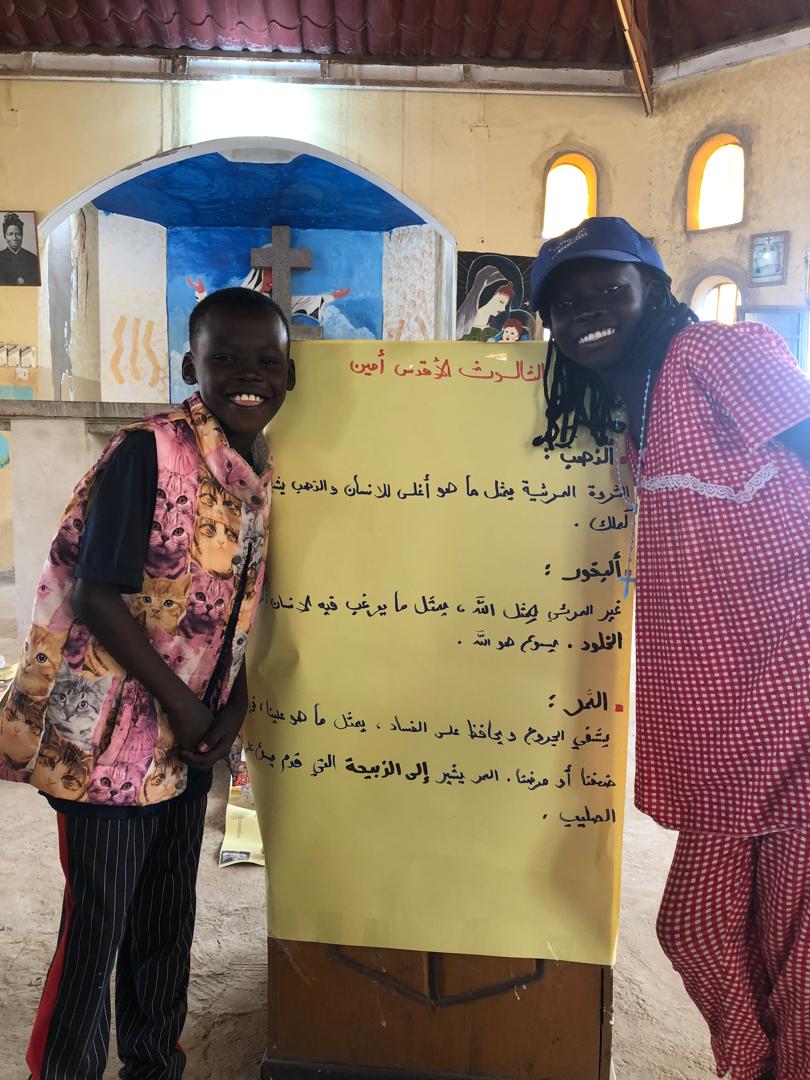 الثالوث الأقدس أمين
الذهب :
الثروة المرئية يمثل ما هو أغلى للانسان والذهب
كملك .
ألبخور :
غير المرئي يمثل اللّه ، يمثل ما يرغب فيه الانسان
الخلود . يسوع هو اللّه .
المر :
يشفي الجروح ويحافظ على الفساد ، يمثل ما هو علينا ، في
ضعفنا أو مرضنا . المر يشير إلى الذبيحة التي قدم يسوع على
الصليب .